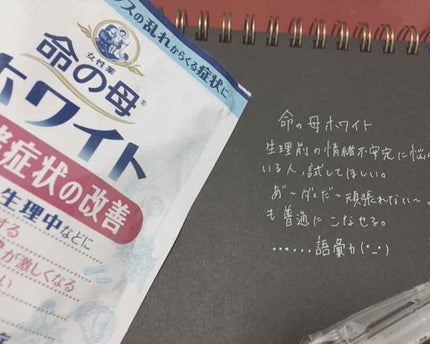 ンスの乱れからくる症状に
女性薬
命の母®
ホワイト
症状の改善
生理中などに
する
が激しくなる
い
命の母ホワイト
生理前の情緒不安定に悩
いる人、試してほしい。
あ゛〜ダメだ〜頑張れない〜
も普通にこなせる。
……語彙力(•_•)